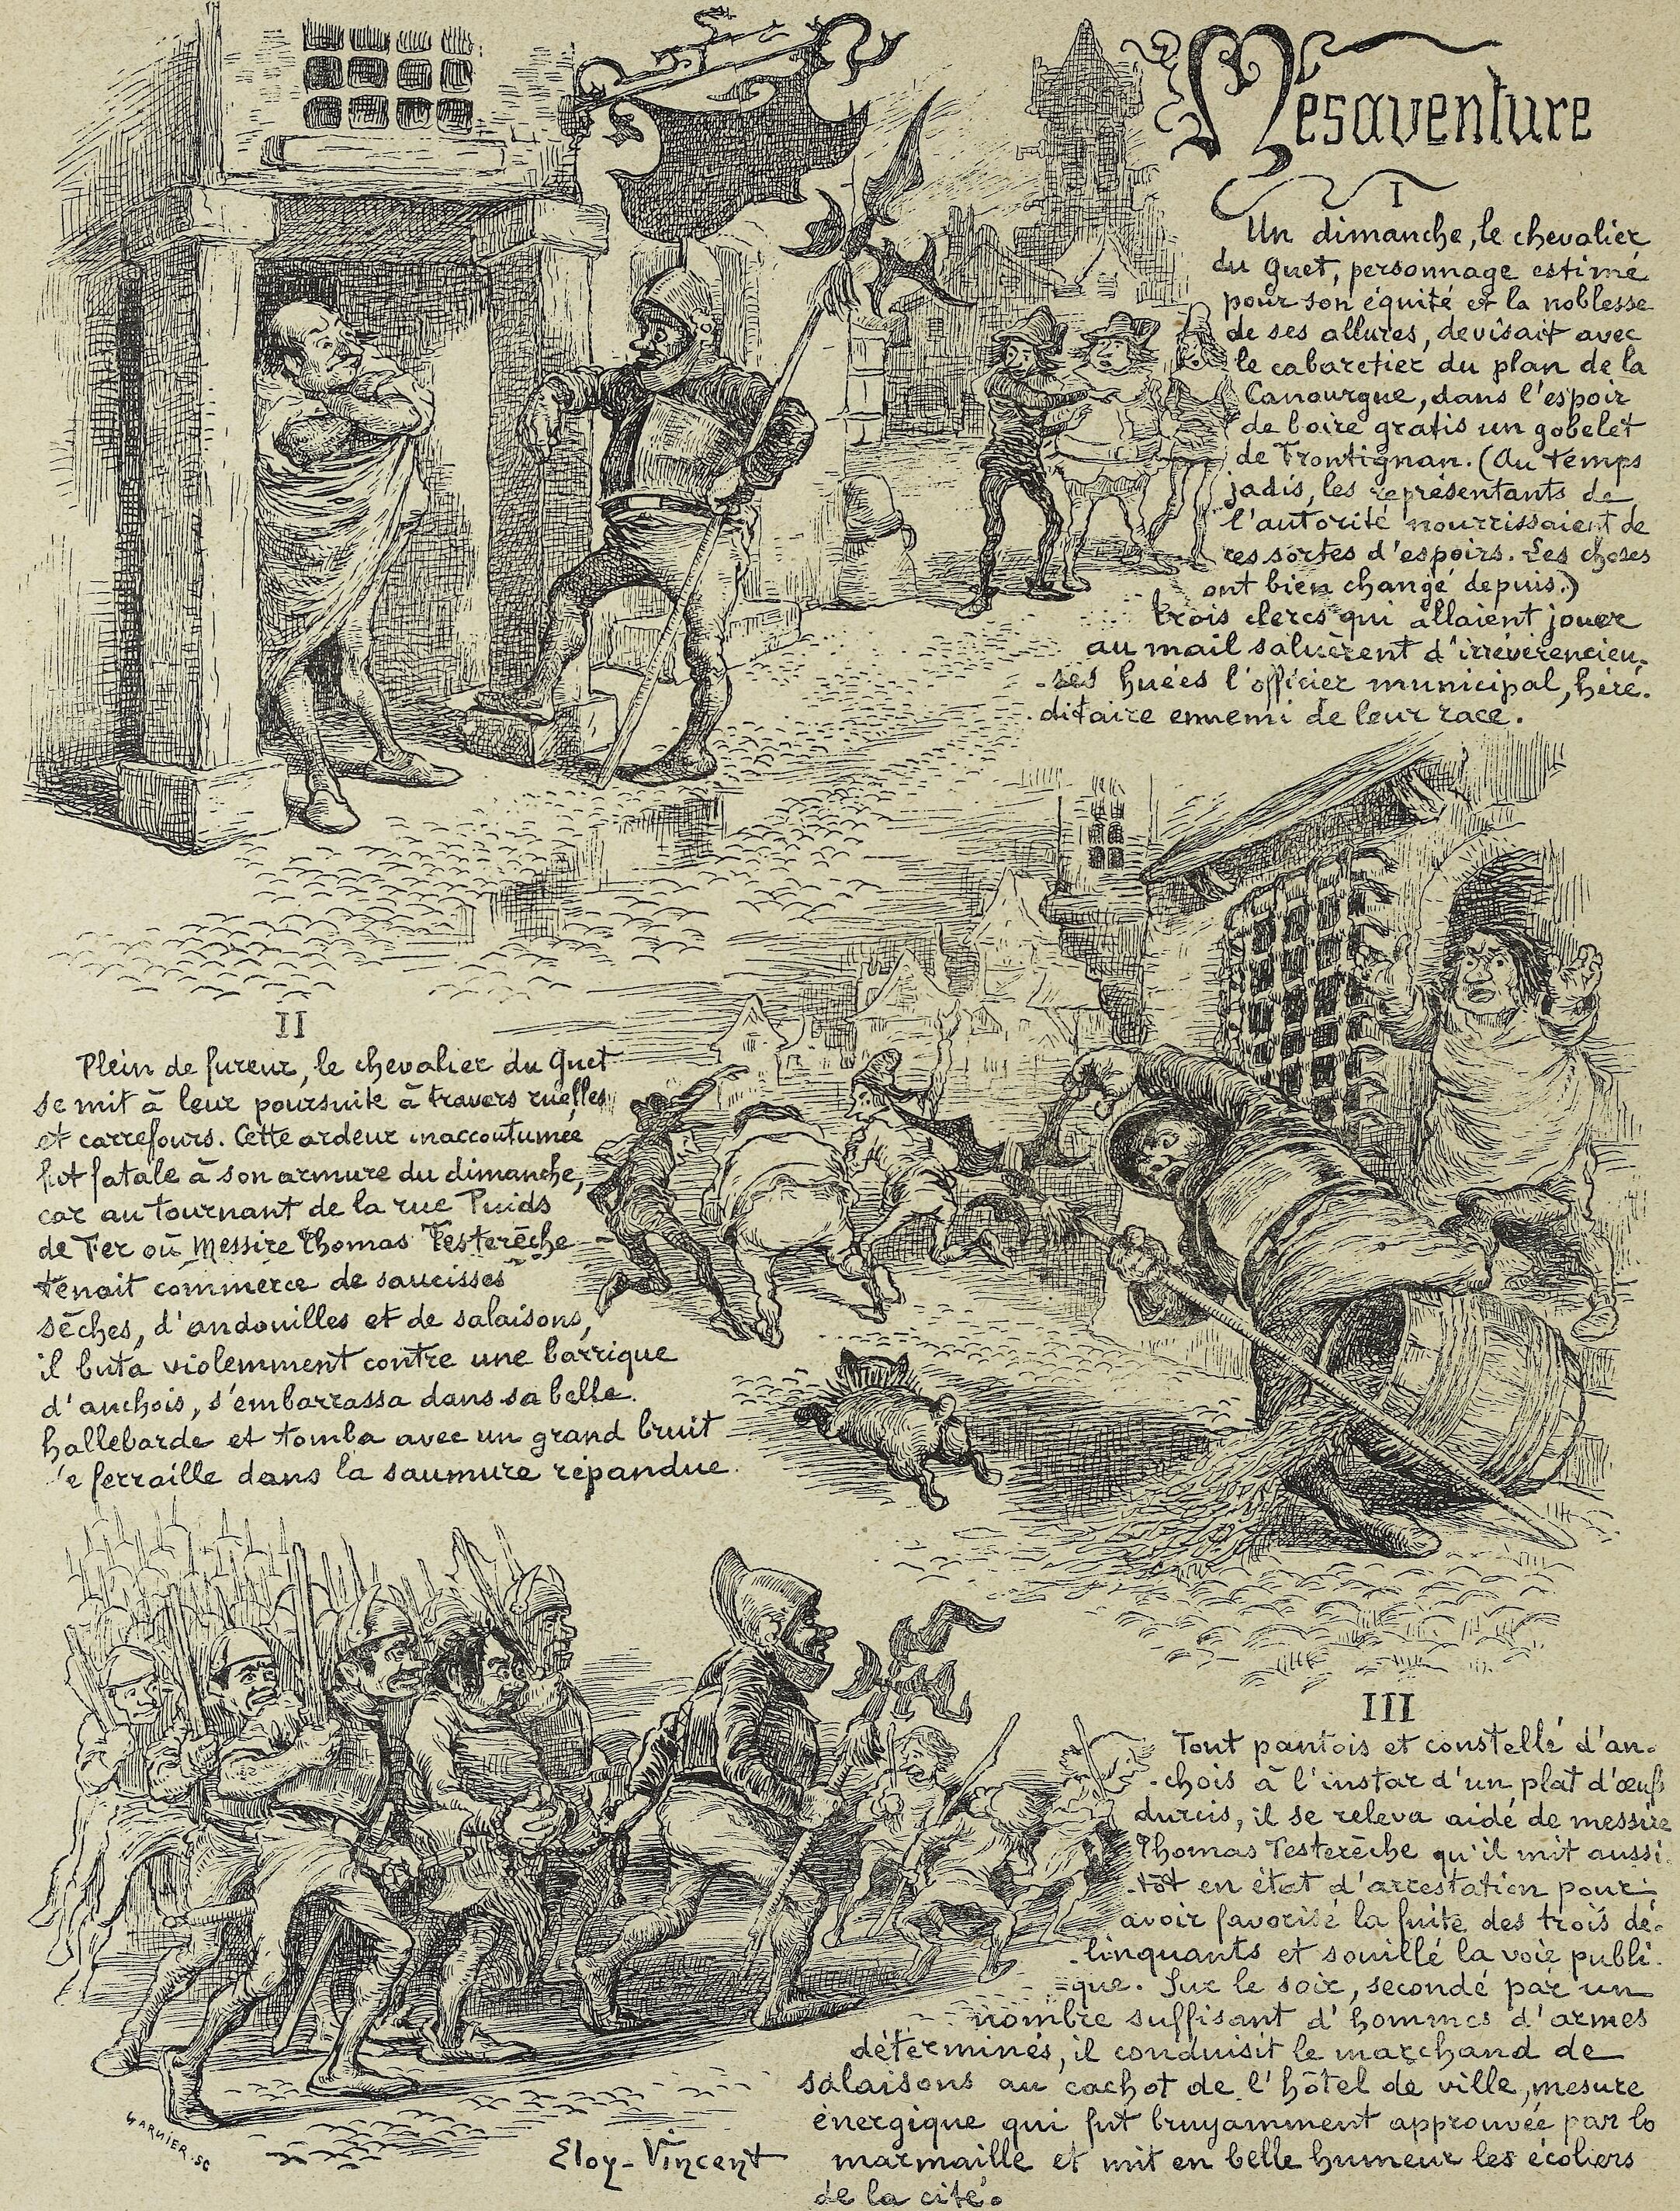 Mésaventure
I
Un dimanche, le chevalier
du Guet, personnage estimé
pour son équité et la noblesse
de ses allures, devisait avec
le cabaretier du plan de la
Canourgue, dans l'espoir
de boire gratis un gobelet
de Frontignan. (Au temps
jadis, les représentants de
l'autorité nourrissaient de
ces sortes d'espoirs. Les choses
ont bien changé depuis.)
trois clercs qui allaient jouer
au mail saluèrent d'irrévérencieu-
-ses huées l'officier municipal, héré-
-ditaire ennemi de leur race.
II
Plein de fureur, le chevalier du Guet
se mit à leur poursuite à travers ruelles
et carrefours. Cette ardeur inaccoutumée
fut fatale à son armure du dimanche,
car au tournant de la rue Puids
de Fer où Messire Thomas Testerêche
tenait commerce de saucisses
sêches, d'andouilles et de salaisons,
il buta violemment contre une barrique
d'anchois, s'embarrassa dans sa belle
hallebarde et tomba avec un grand bruit
de ferraille dans la saumure répandue.
III
Tout pantois et constellé d'an-
-chois à l'instar d'un plat d'œufs
durcis, il se releva aidé de messire
Thomas Testerêche qu'il mit aussi-
-tôt en état d'arrestation pour
avoir favorisé la fuite des trois dé-
-linquants et souillé la voie publi-
-que. Sur le soir, secondé par un
nombre suffisant d'hommes d'armes
déterminés, il conduisit le marchand de
salaisons au cachot de l'hôtel de ville, mesure
énergique qui fut bruyamment approuvée par la
marmaille et mit en belle humeur les écoliers
de la cité.
Eloy-Vincent
GARNIER. SC